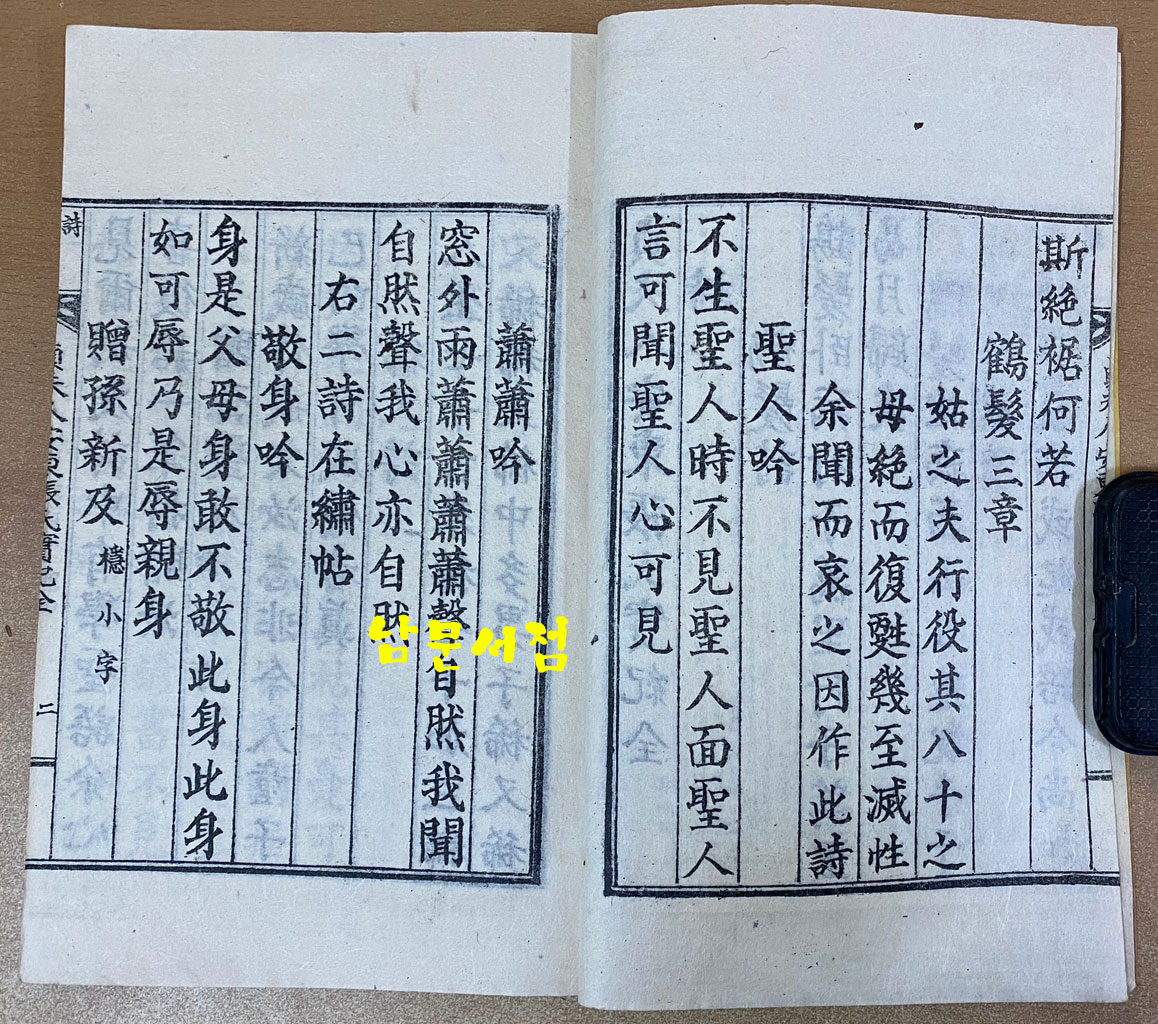 斯絶裾何若
鶴髮三章
姑之夫行役其八十之
母絶而復甦幾至滅性
余聞而哀之因作此詩
聖人吟
不生聖人時不見聖人面聖人
言可聞聖人心可見
蕭蕭吟
窓外雨蕭蕭蕭蕭聲自然我聞
自然聲我心亦自然
右二詩在繡帖
敬身吟
身是父母身敢不敬此身此身
如可辱乃是辱親身
贈孫新及 穩小字
詩 夫人安東張氏實紀全 二
남문서점